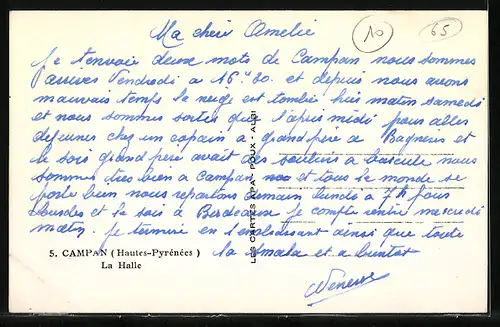 10
65
Ma cheri Amelie
Je t'envoie deux mots de Campan nous sommes
arrives Vendredi a 16 H 30. et depuis nous avons
mauvais temps la neige est tombée hier matin samedi
et nous sommes sortis que l'apres midi pour aller
dejeuner chez un copain a grand père a Bagneres et
le soir grand père avait des souliers a bascule nous
sommes tres bien a Campan et tous le monde se
porte bien nous repartons demain lundi a 7 h pour
Lourdes et le soir a Bordeaux je compte rentré mercredi
matin. Je termine en t'embrassant ainsi que toute
la smala et a bientot
LES CARTES "APA" POUX - ALBI
5. CAMPAN (Hautes-Pyrénées)
La Halle